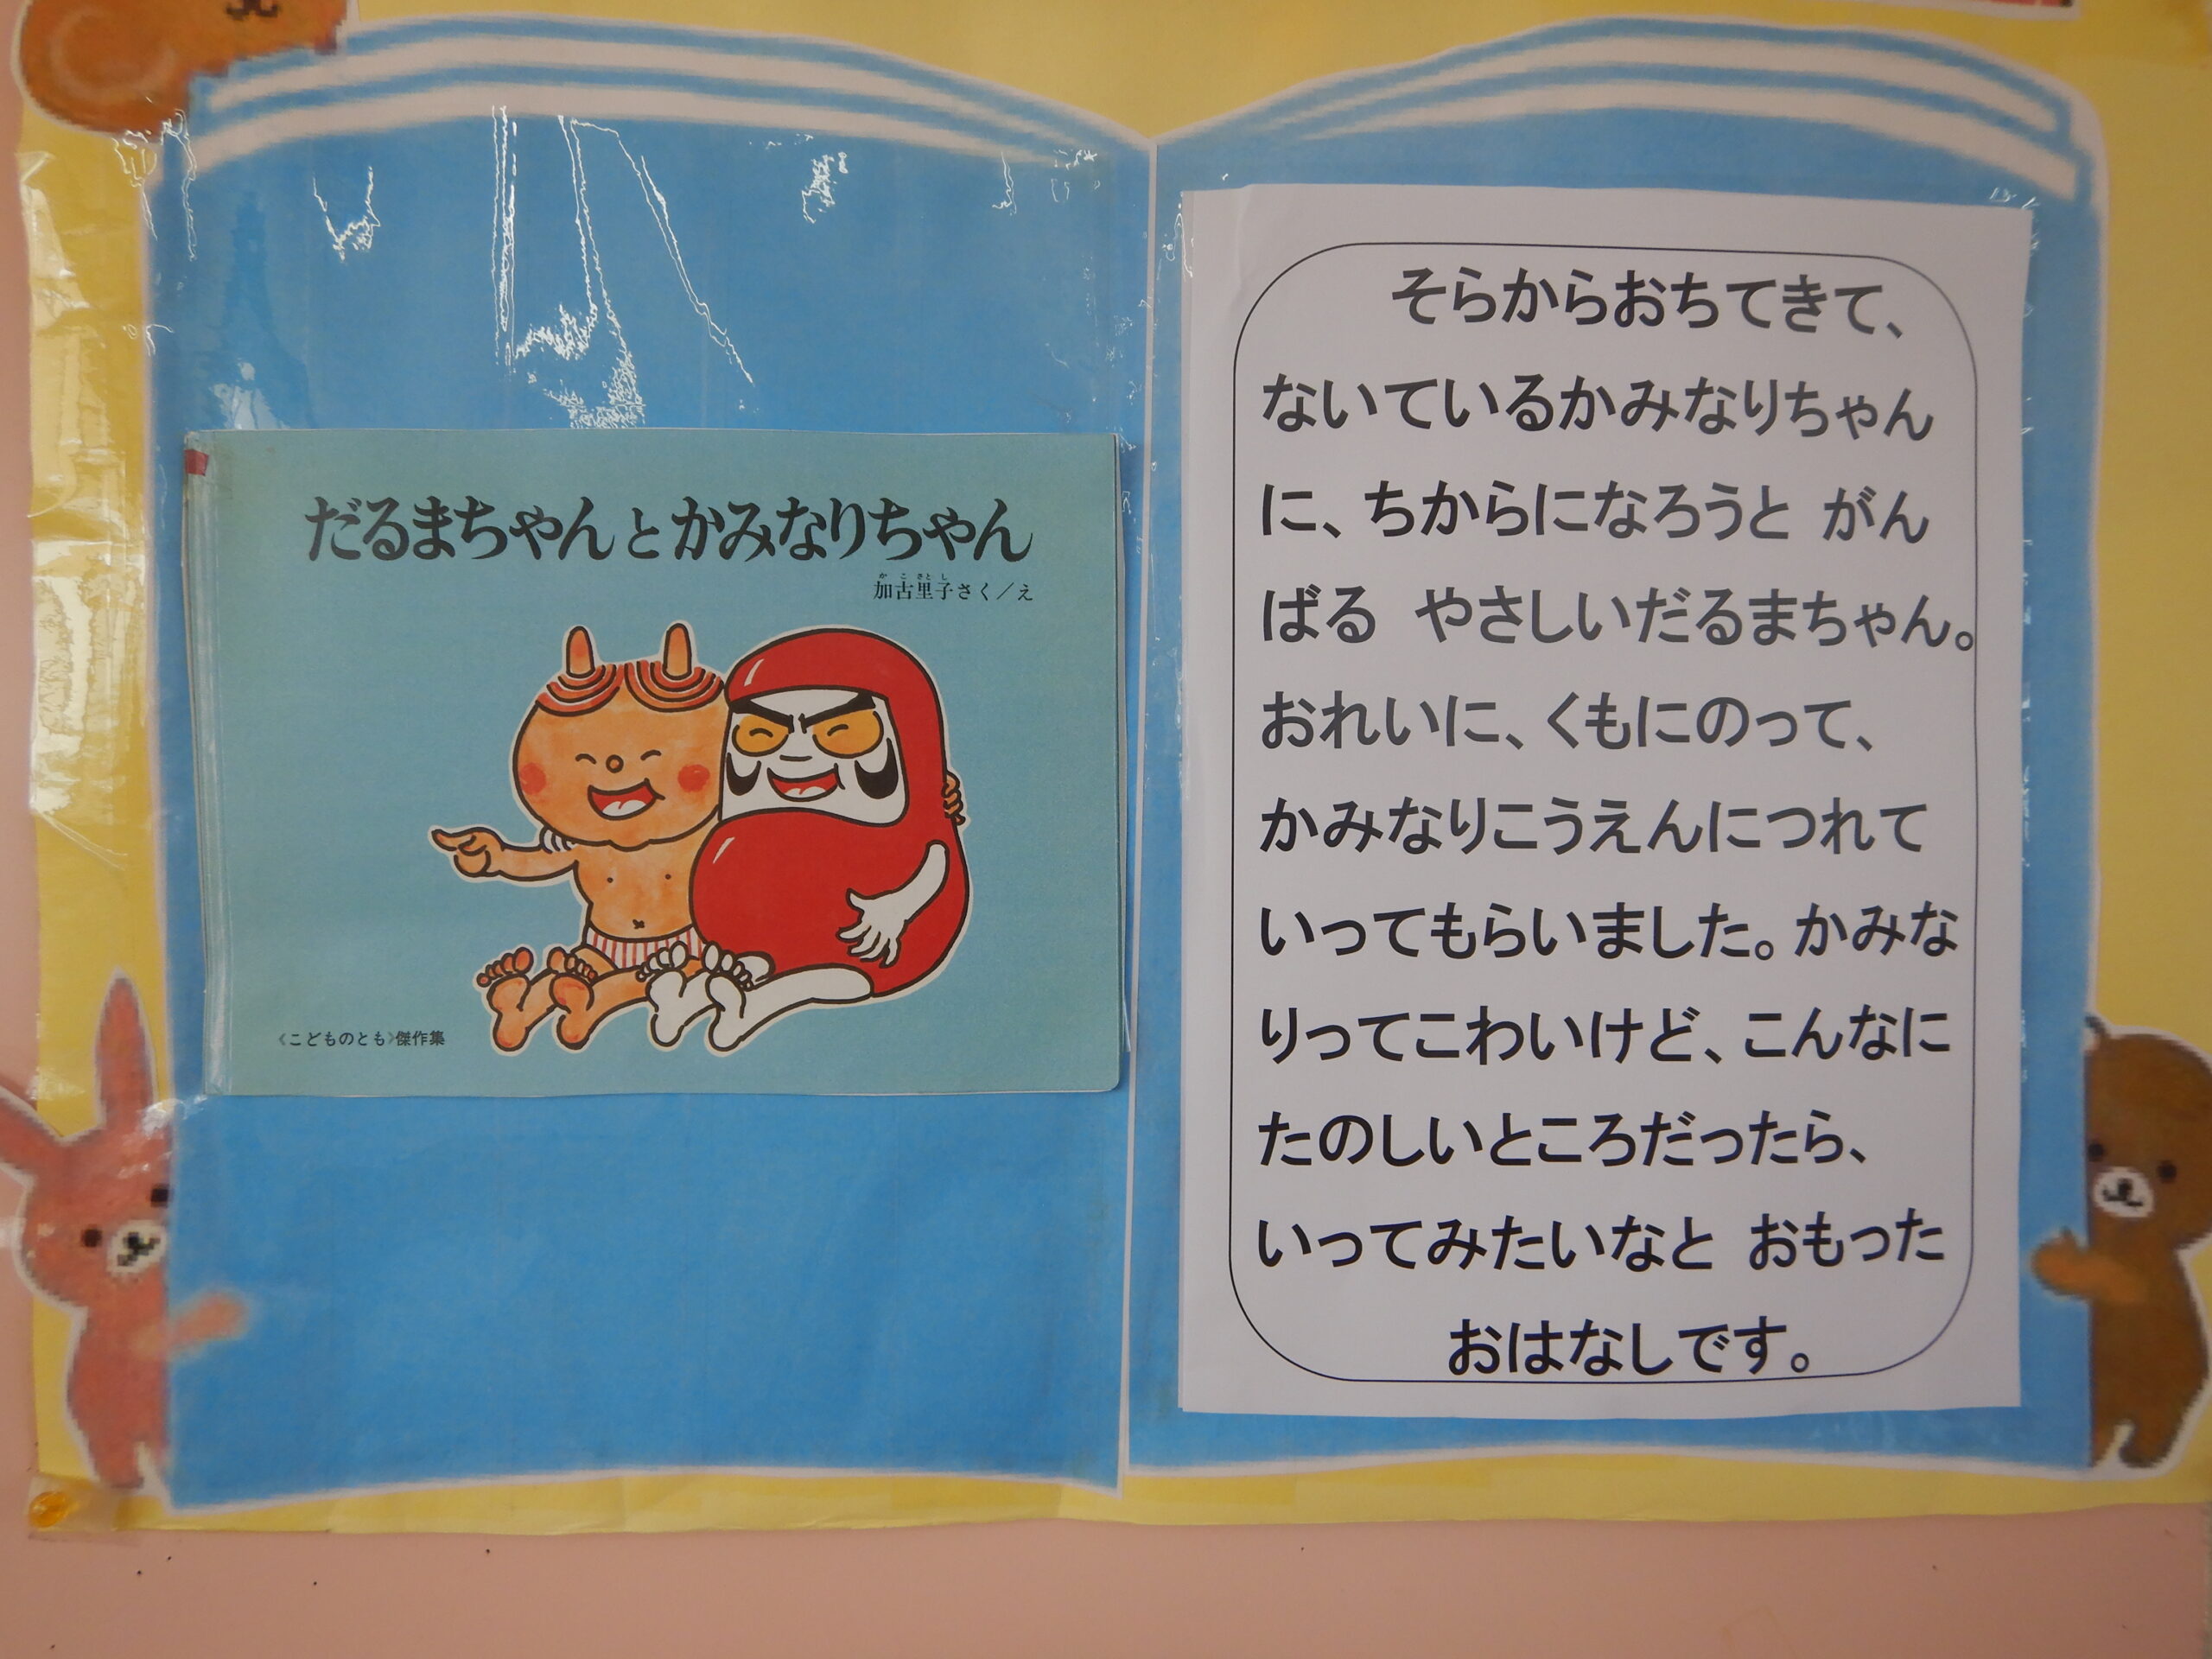 だるまちゃんとかみなりちゃん
か こ さと し
加古里子さく／え
《こどものとも》傑作集
そらからおちてきて、
ないているかみなりちゃん
に、ちからになろうと がん
ばる やさしいだるまちゃん。
おれいに、くもにのって、
かみなりこうえんにつれて
いってもらいました。かみな
りってこわいけど、こんなに
たのしいところだったら、
いってみたいなと おもった
おはなしです。